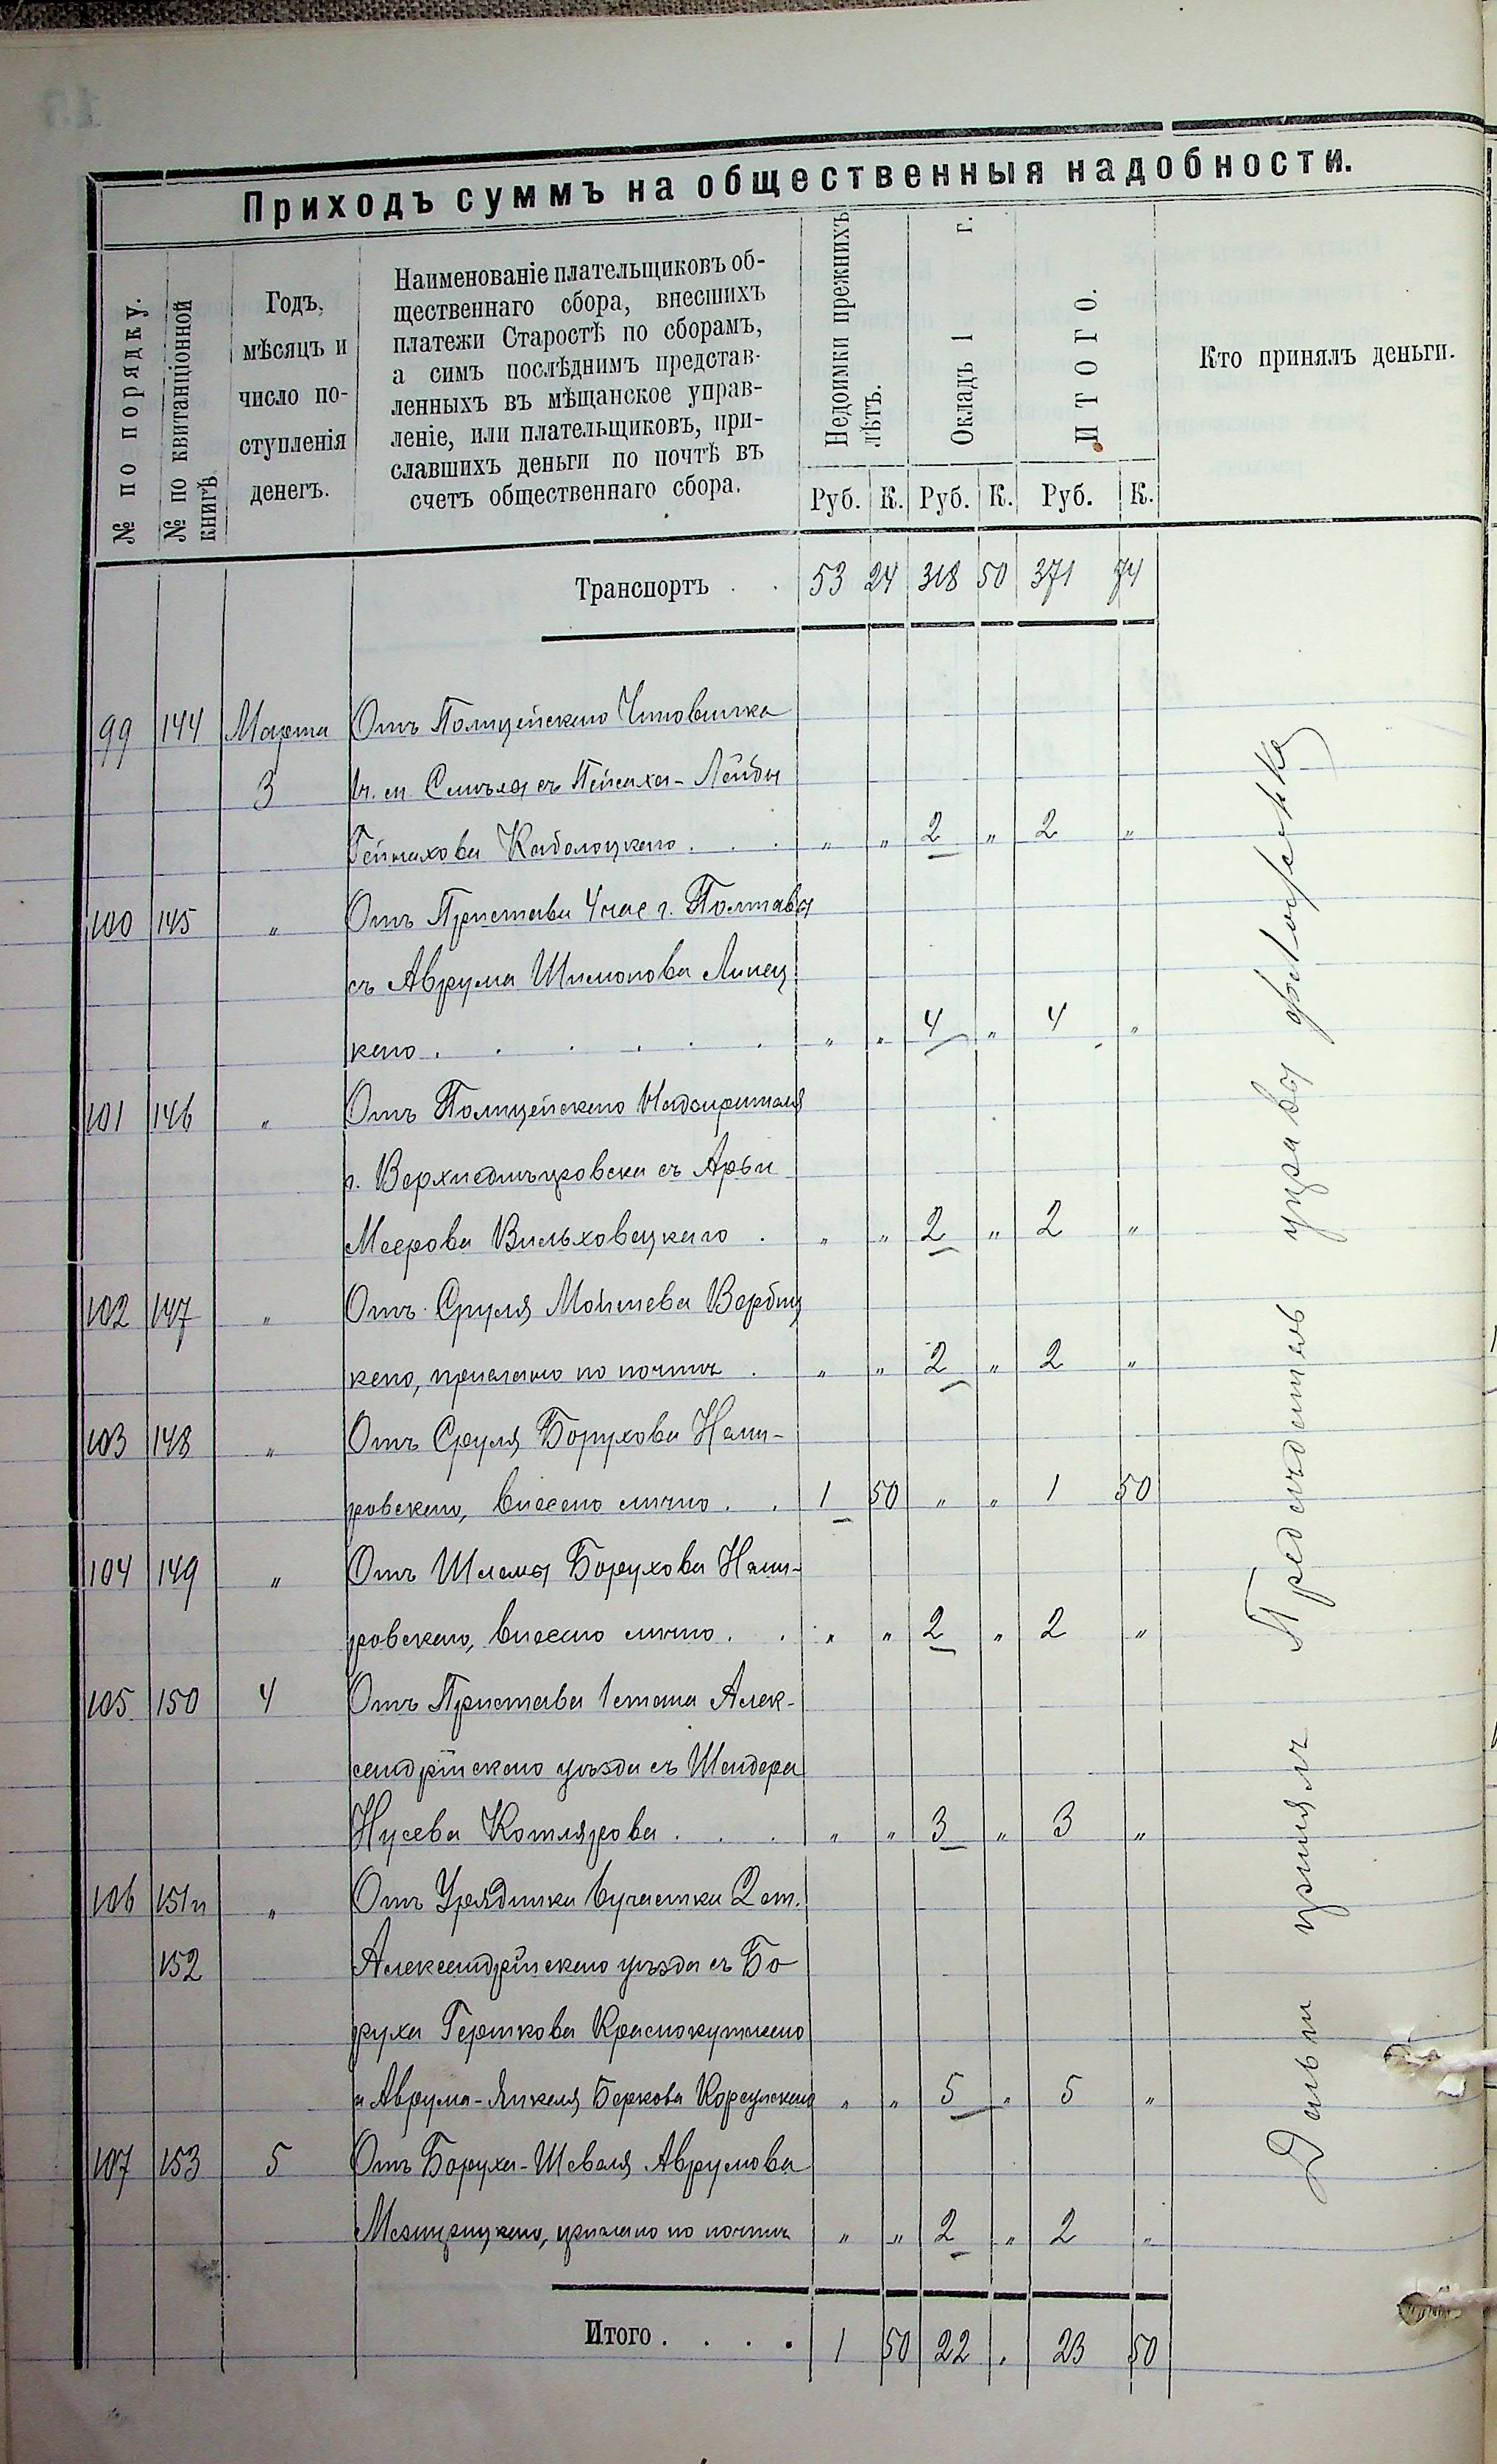 Приходъ суммъ на общественныя надобности.
№ по порядку.
№ по квитанціонной
книгѣ
Годъ,
мѣсяцъ и
число по-
ступленія
денегъ.
Наименованіе плательщиковъ об-
щественнаго сбора, внесшихъ
платежи Старостѣ по сборамъ,
а симъ послѣднимъ представ-
ленныхъ въ мѣщанское управ-
леніе, или плательщиковъ, при-
славшихъ деньги по почтѣ въ
счетъ общественнаго сбора.
Недоимки прежнихъ
лѣтъ.
Окладъ 1 г.
ИТОГО.
Кто принялъ деньги.
Руб. К. Руб. К. Руб. К.
Транспортъ . . 53 24 318 50 371 74
99 144 Марта Отъ Полицейскаго Чиновника
3 м. Смѣла съ Пейсаха-Лейбы
Кабалоцкаго . . . " " 2 " 2 "
100 145 " Отъ Пристава 4 час г. Полтавы
съ Аврума Шимонова Липец
каго . . . . . . " " 4 " 4 "
101 146 " Отъ Полицейскаго Надзирателя
г. Верхнеднѣпровска съ Арьи
Меерова Вильховецкаго . " " 2 " 2 "
102 147 " Отъ Сруля Мошкова Вербиц
каго, прислано по почтѣ . " " 2 " 2 "
103 148 " Отъ Сруля Борухова Неми-
ровскаго, внесено лично . . 1 50 " " 1 50
104 149 " Отъ Шлемы Борухова Неми-
ровскаго, внесено лично . . " " 2 " 2 "
105 150 4 Отъ Пристава 1 стана Алек-
сандрійскаго уѣзда съ Шендера
Нусева Котлярова . . . " " 3 " 3 "
106 151 и " Отъ Урядника 6 участка 2 ст.
152 Александрійскаго уѣзда съ Бо
руха Гершкова Краснокутскаго
и Аврума-Янкеля Беркова Корсунскаго " " 5 " 5 "
107 153 5 Отъ Боруха-Шевеля Аврумова
Межирицкаго, прислано по почтѣ " " 2 " 2 "
Итого . . . . 1 50 22 . 23 50
Деньги принялъ Предсѣдатель управы